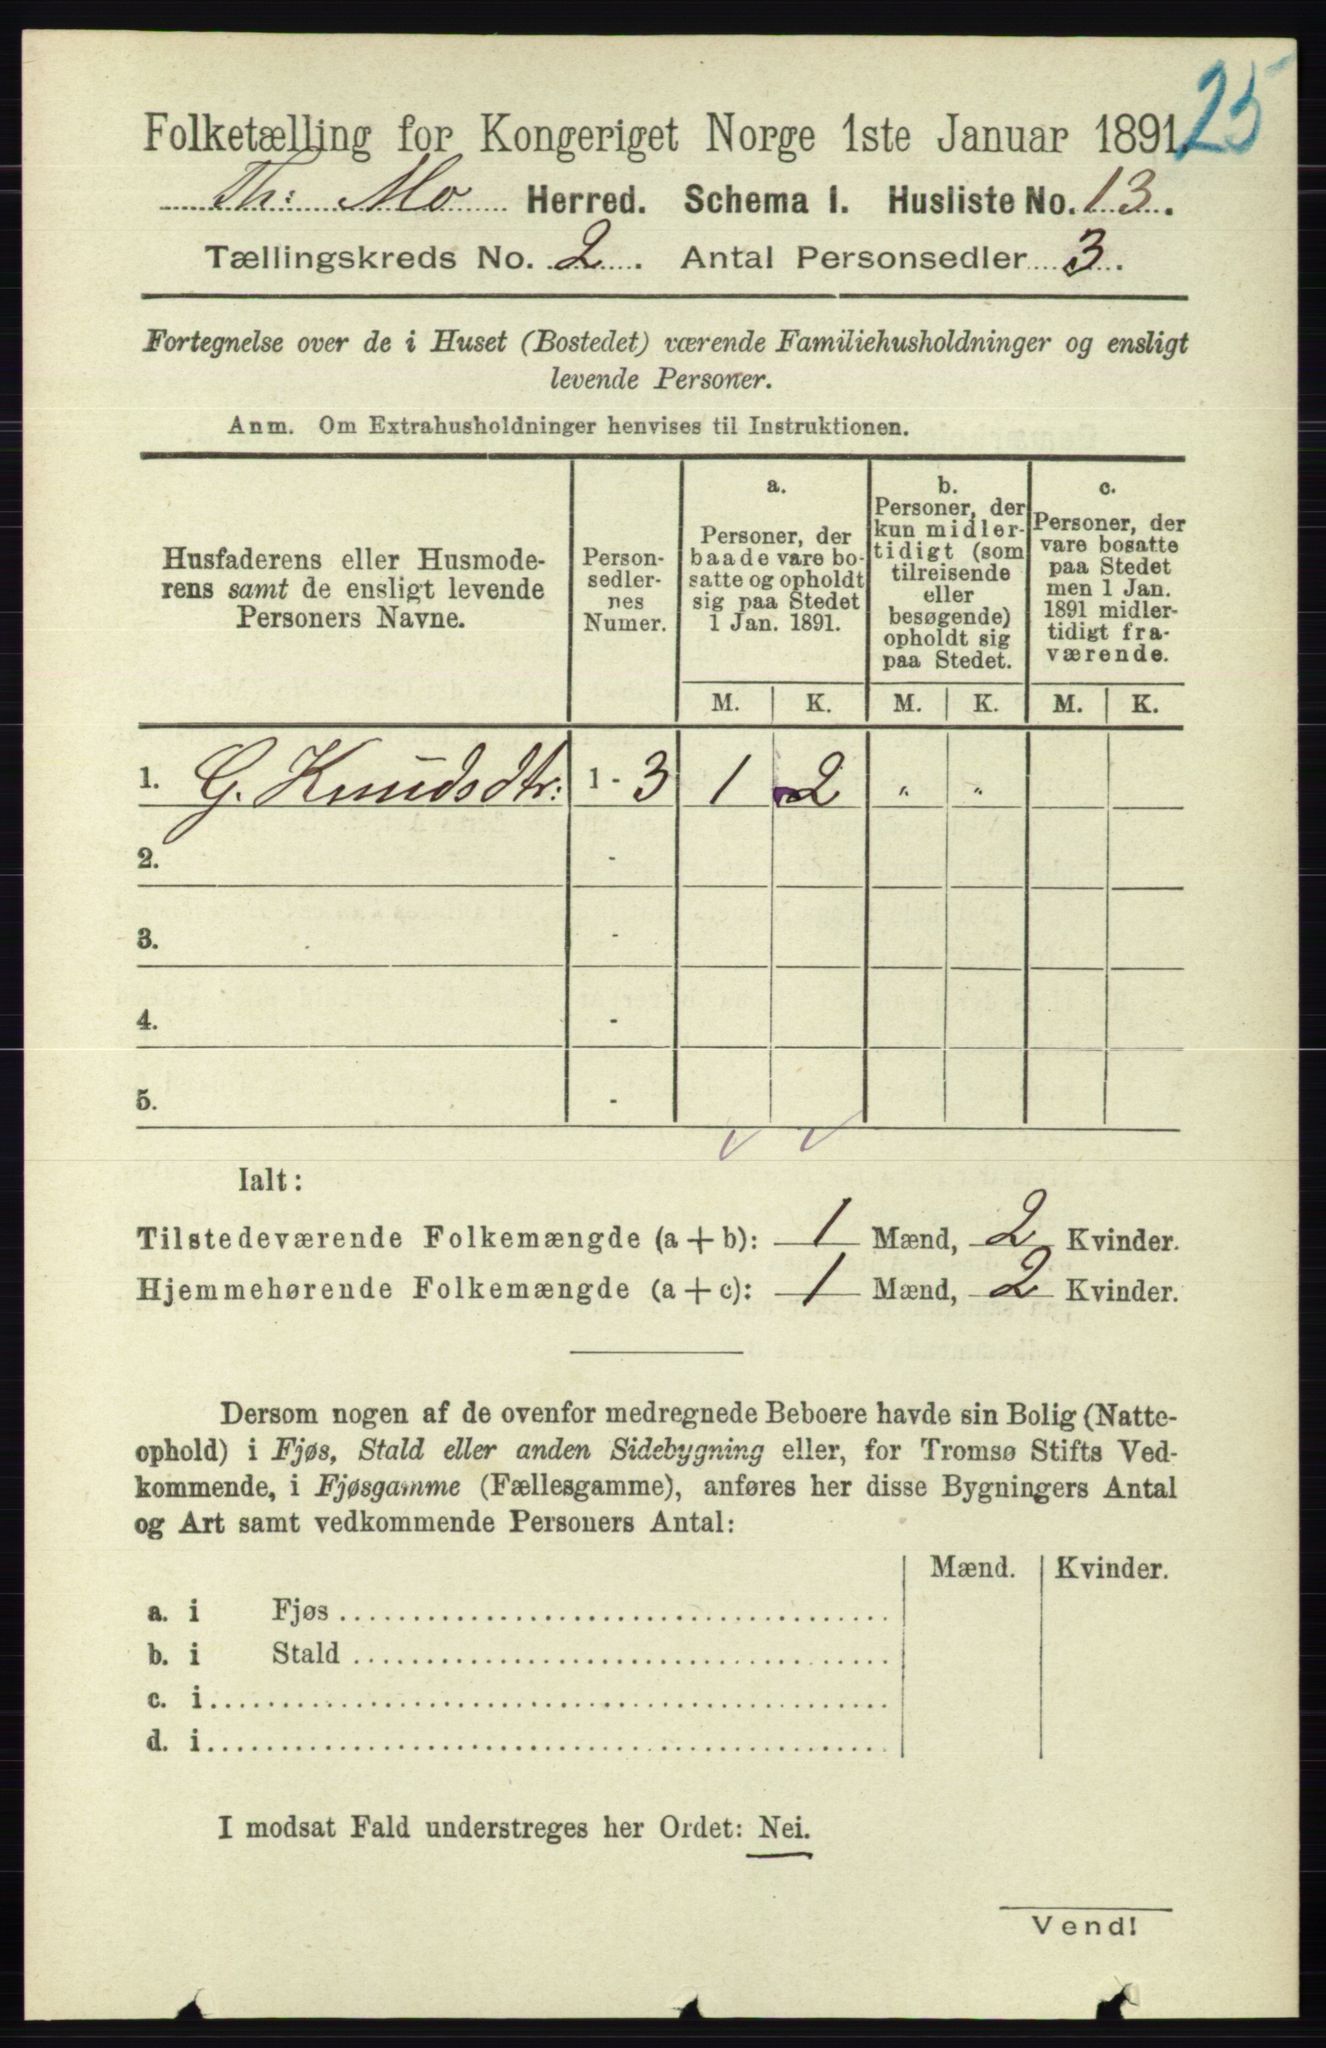 25
Folketælling for Kongeriget Norge 1ste Januar 1891.
Th: Mo Herred. Schema 1. Husliste No. 13.
Tællingskreds No. 2. Antal Personsedler 3.
Fortegnelse over de i Huset (Bostedet) værende Familiehusholdninger og ensligt
levende Personer.
Anm. Om Extrahusholdninger henvises til Instruktionen.
Husfaderens eller Husmode-
rens samt de ensligt levende
Personers Navne.
Person-
sedler-
nes
Numer.
a.
Personer, der
baade vare bo-
satte og opholdt
sig paa Stedet
1 Jan. 1891.
b.
Personer, der
kun midler-
tidigt (som
tilreisende
eller
besøgende)
opholdt sig
paa Stedet.
c.
Personer, der
vare bosatte
paa Stedet
men 1 Jan.
1891 midler-
tidigt fra-
værende.
M. K. M. K. M. K.
1. G. Knudsdtr: 1 - 3 1 2 " "
2. -
3. -
4. -
5. -
Ialt:
Tilstedeværende Folkemængde (a + b): 1 Mænd, 2 Kvinder.
Hjemmehørende Folkemængde (a + c): 1 Mænd, 2 Kvinder.
Dersom nogen af de ovenfor medregnede Beboere havde sin Bolig (Natte-
ophold) i Fjøs, Stald eller anden Sidebygning eller, for Tromsø Stifts Ved-
kommende, i Fjøsgamme (Fællesgamme), anføres her disse Bygningers Antal
og Art samt vedkommende Personers Antal:
Mænd. Kvinder.
a. i Fjøs
b. i Stald
c. i
d. i
I modsat Fald understreges her Ordet: Nei.
Vend!